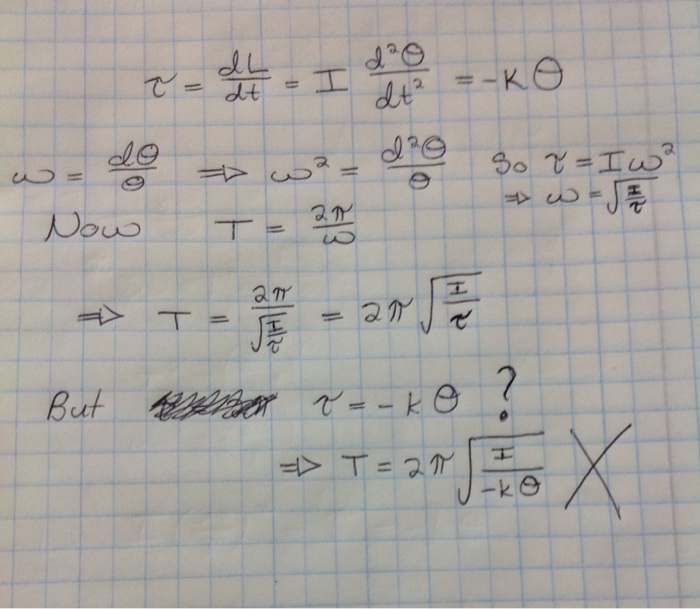 τ = dL/dt = I d²θ/dt² = -κθ
ω = dθ/θ ⇒ ω² = d²θ/θ So τ = Iω²
⇒ ω = √(I/τ)
Now T = 2π/ω
⇒ T = 2π/√(I/τ) = 2π √(I/τ)
But τ = -κθ ?
⇒ T = 2π √(I/-κθ) X